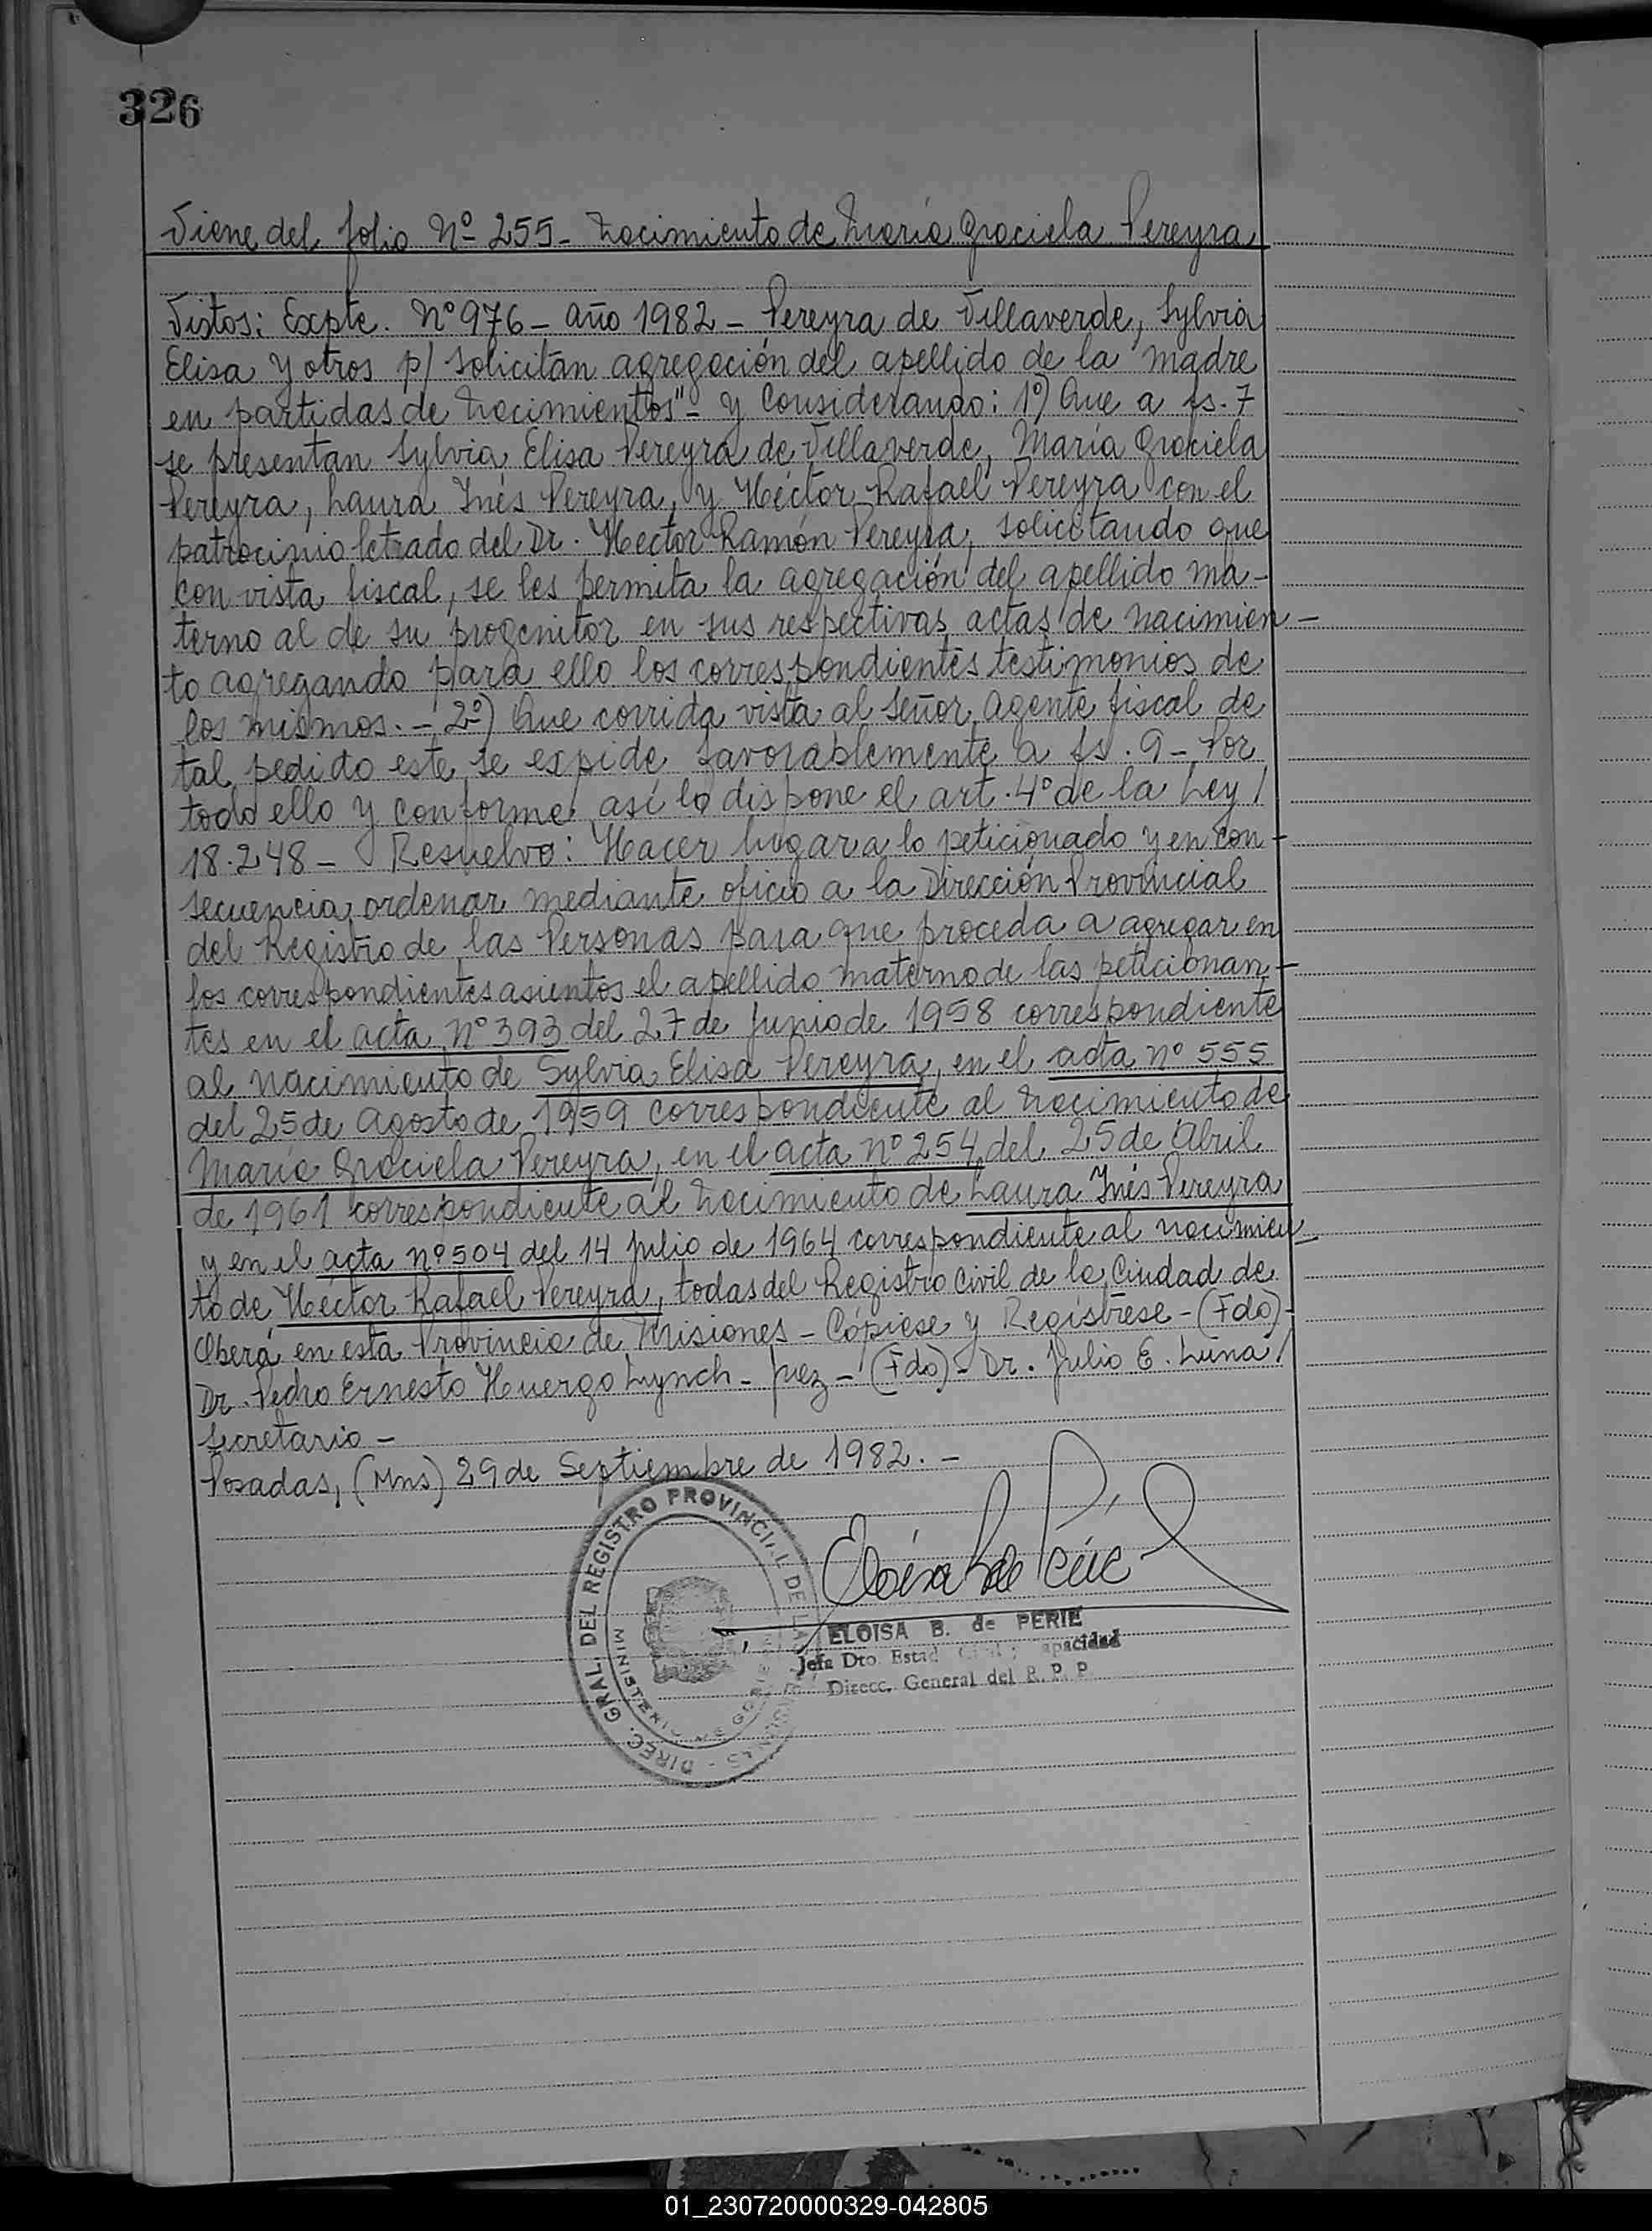 326
Viene del folio Nº 255 - Nacimiento de María Graciela Pereyra
Vistos: Expte. Nº 976 - Año 1982 - Pereyra de Villaverde, Sylvia
Elisa y otros p/ solicitan agregación del apellido de la madre
en partidas de Nacimientos" - y Considerando: 1º) Que a fs. 7
se presentan Sylvia Elisa Pereyra de Villaverde, María Graciela
Pereyra, Laura Inés Pereyra, y Héctor Rafael Pereyra con el
patrocinio letrado del Dr. Hector Ramón Pereyra, solicitando que
con vista fiscal, se les permita la agregación del apellido ma-
terno al de su progenitor en sus respectivas actas de nacimien-
to agregando para ello los correspondientes testimonios de
los mismos. - 2º) Que corrida vista al Señor Agente fiscal de
tal pedido este se expide favorablemente a fs. 9 - Por
todo ello y conforme así lo dispone el art. 4º de la Ley /
18.248 - Resuelvo: Hacer lugar a lo peticionado y en con-
secuencia, ordenar mediante oficio a la Dirección Provincial
del Registro de las Personas para que proceda a agregar en
los correspondientes asientos el apellido materno de las peticionan-
tes en el acta nº 393 del 27 de Junio de 1958 correspondiente
al nacimiento de Sylvia Elisa Pereyra, en el acta nº 555
del 25 de Agosto de 1959 correspondiente al Nacimiento de
María Graciela Pereyra, en el acta nº 254 del 25 de Abril
de 1961 correspondiente al Nacimiento de Laura Inés Pereyra
y en el acta nº 504 del 14 Julio de 1964 correspondiente al nacimien-
to de Héctor Rafael Pereyra, todas del Registro Civil de la Ciudad de
Oberá en esta Provincia de Misiones - Cópiese y Regístrese - (Fdo) -
Dr. Pedro Ernesto Huergo Lynch - Juez - (Fdo) - Dr. Julio E. Luna /
Secretario -
Posadas, (Mns) 29 de Septiembre de 1982. -
DIREC. GRAL. DEL REGISTRO PROVINCIAL DE LAS PERSONAS
MINISTERIO DE GOBIERNO
ELOISA B. de PERIE
Jefa Dto. Estad Civil y Capacidad
Direcc. General del R. P. P.
01_230720000329-042805